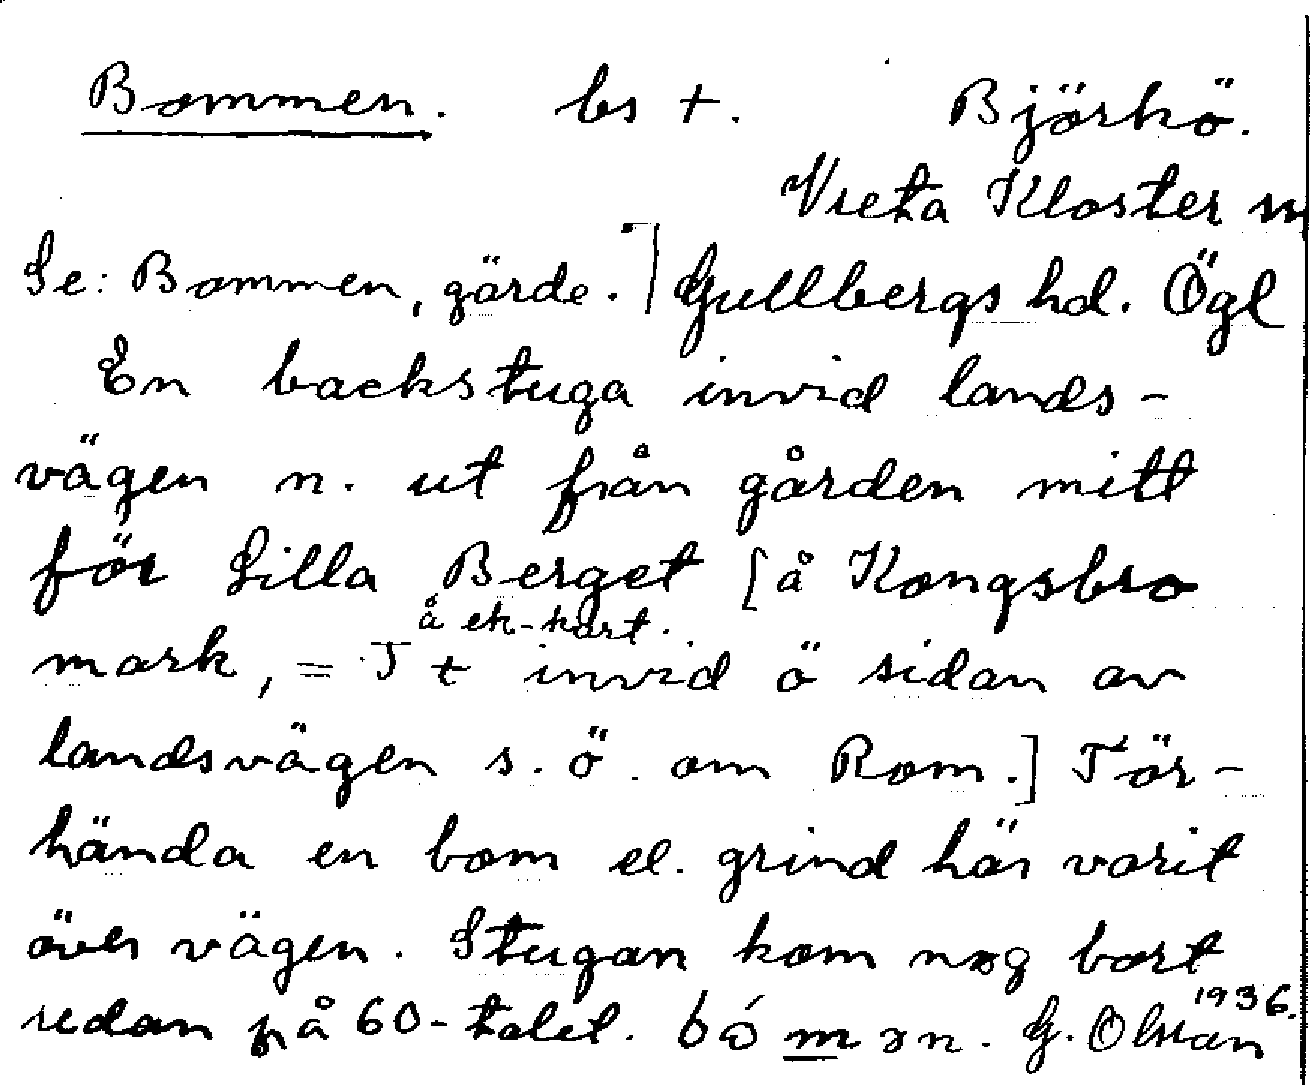 Bommen. bs +. Björkö.
Vreta Kloster
Se: Bommen, gärde.] Gullbergs hd. Ögl
En backstuga invid lands-
vägen n. ut från gården mitt
för Lilla Berget [å Kongsbro
å ek-kart.
mark, = T + invid ö sidan av
landsvägen s. ö. om Rom.]För-
hända en bom el. grind här varit
över vägen. Stugan kom nog bort
redan på 60-talet. G. Olsson
1936.